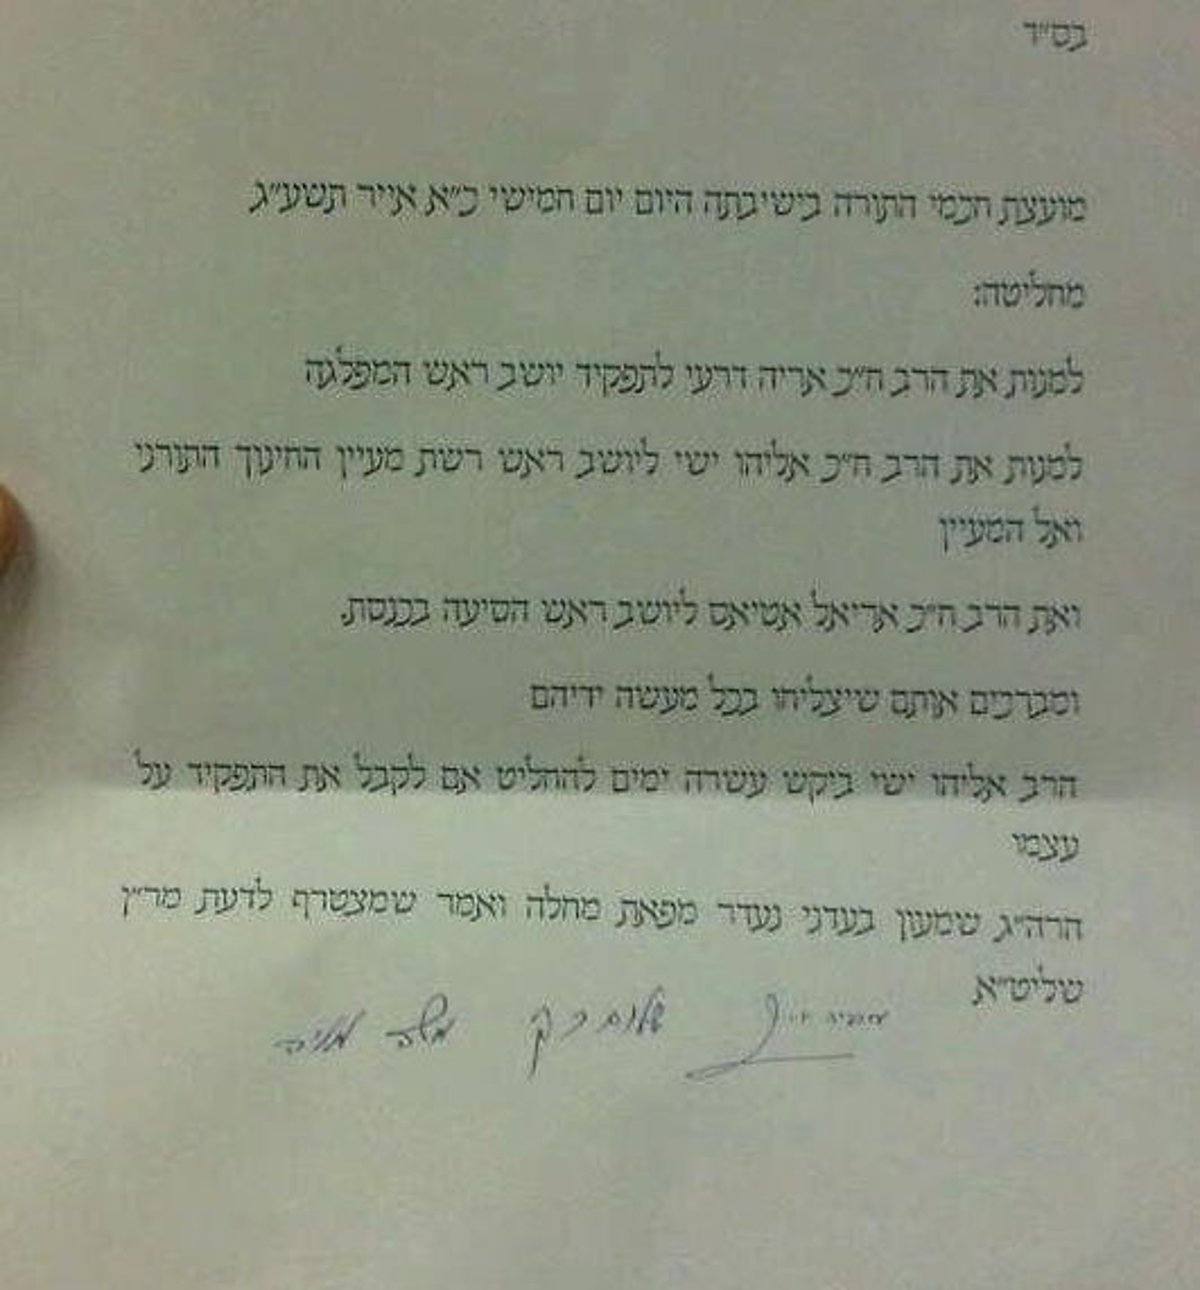 בס"ד
מועצת חכמי התורה בישיבתה היום יום חמישי כ"א אייר תשע"ג
מחליטה:
למנות את הרב ח"כ אריה דרעי לתפקיד יושב ראש המפלגה
למנות את הרב ח"כ אליהו ישי ליושב ראש רשת מעיין החינוך התורני
ואל המעיין
ואת הרב ח"כ אריאל אטיאס ליושב ראש הסיעה בכנסת.
ומברכים אותם שיצליחו בכל מעשה ידיהם
הרב אליהו ישי ביקש עשרה ימים להחליט אם לקבל את התפקיד על
עצמו
הרה"ג שמעון בעדני נעדר מפאת מחלה ואמר שמצטרף לדעת מר"ן
שליט"א
שלום כהן משה מאיה